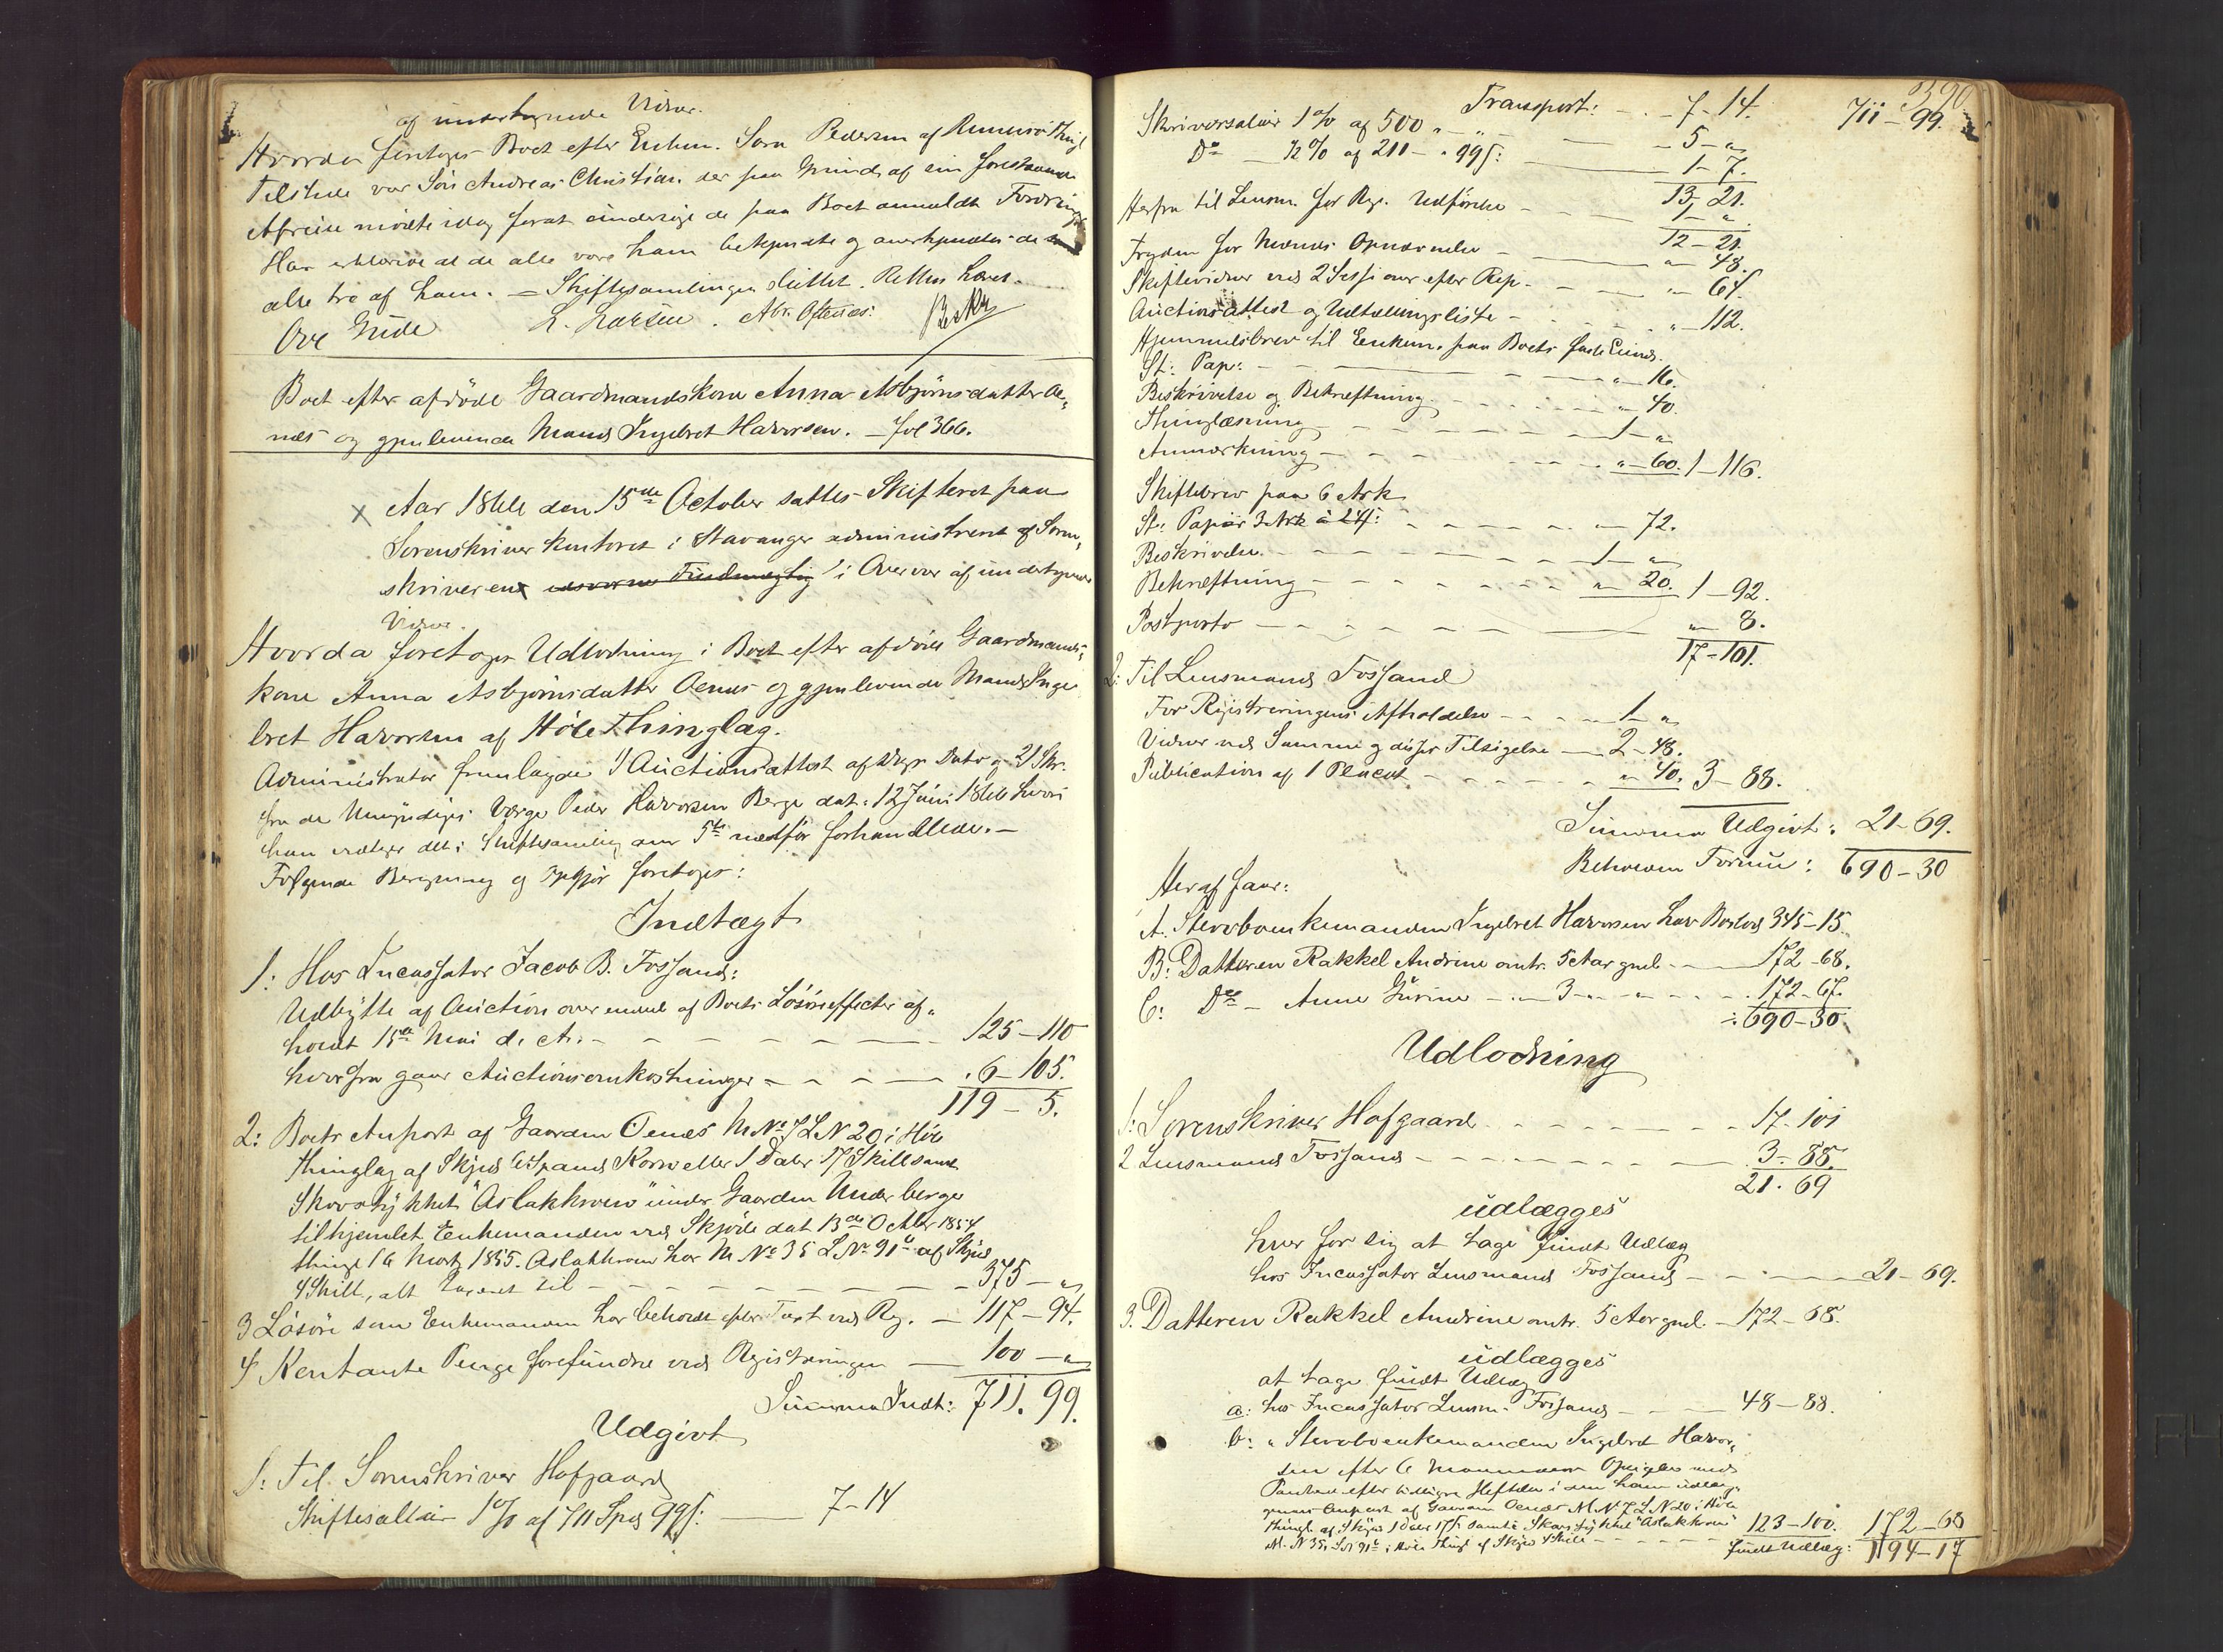 af undertegnede Vidner.
Hvorda foretoges Boet efter Enkem. Søren Pedersen af Rennesø Thingl.
Tilstede var Søn Andreas Christian. der paa Grund af sin forestaaende
Afreise mødte idag forat undersøge de paa Boet anmeldte Fordringer
Han erklærede at de alle vare ham bekjendte og anerkjendtes de
alle tro af ham. – Skiftesamlingen sluttet. Retten hævet.
Ove Gude L. Larsen. Abr. Oftenæs:
Boet efter afdøde Gaardmandskone Anna Asbjørnsdatter Oe-
næs og gjenlevende Mand Ingebret Havorsen. – fol 366.
x Aar 1866 den 15de October sattes Skifteret paa
Sorenskriver kontoret i Stavanger administreret af Soren-
skriveren edsvorne Fuldmægtig i Overvær af undertegnede
Vidner.
Hvorda foretoges Udlodning i Boet efter afdøde Gaardmands-
kone Anna Asbjørnsdatter Oenæs og gjenlevende Mand Inge-
bret Havorsen af Høle Thinglag.
Administrator fremlagde 1) Auctionsattest af Dags Dato og 2) Skr.
fra de Umyndiges Værge Peder Havorsen Berge dat: 12 Juni 1866 hvori
han vedtager det i Skiftesamling den 5te næstfør forhandlede. –
Følgende Beregning og Opgjør foretoges:
Indtægt
1: Hos Incassator Jacob B. Fossand:
Udbytte af Auction over endeel af Boets Løsøreeffecter af-
holdt 15de Mai d. A. – 125–110
hvorfra gaar Auctionsomkostninger – 6–105.
119 – 5.
2: Boets Anpart af Gaarden Oenæs M No 7 L N 20 i Høle
Thinglag af Skyld 6 Spand Korn eller 1 Daler 17 Skill samt
Skovstykket "Aslakkroen" under Gaarden Underberge
tilhjemlet Enkemanden ved Skjøde dat 13de October 1854
thingl 16 Marts 1855. Aslakkroen har M No 35 L No 91b af Skyld
4 Skill, alt taxeret til – 375 – "
3 Løsøre som Enkemanden har beholdt efter Taxt ved Reg. – 117–94.
4 Kontante Penge forefundne ved Registreringen – 100 – "
Summa Indt: 711. 99.
Udgivt
1: Til Sorenskriver Hofgaard
Skiftesallair 1% af 711 Spd 99ſ: – 7–14
390
Transport: – 7–14. 711–99.
Skriversalair 1% af 500 " – " – 5 – "
Do – ½% af 211 – " 99ſ: – 1–7.
13–21.
Herfra til Lensm. for Reg. Udførelse – 1 – "
12–21.
Frygden for Mænds Opnævnelse – " – 48.
Skiftevidner ved 2 Sessioner efter Rep. – " – 64.
Auctionsattest og Udtællingsliste – " – 112.
Hjemmelsbrev til Enkem. paa Boets faste Eiend.
St: Pap: – " – 16.
Beskrivelse og Bekræftning – " – 40.
Thinglæsning – 1 – "
Anmærkning – " – 60. 1–116.
Skiftebrev paa 6 Ark
St: Papiir 3 Ark à 24ſ: – " – 72.
Beskrivelse – 1 – "
Bekræftning – " – 20. 1–92.
Postporto – " – 8.
17–101.
2: Til Lensmand Fossand
For Registreringens Afholdelse – 1 – "
Vidner ved Samme og disses Tilsigelse – 2–48.
Publication af 1 Placat – " – 40. 3–88.
Summa Udgivt: 21–69.
Beholden Formue: 690–30
Heraf faar:
A. Stervboenkemanden Ingebret Havorsen Halv Boslod 345–15.
B: Datteren Rakkel Andrine omtr. 5 Aar gml. – 172–68.
C: Do – Anne Gurine – 3 – " – " – 172–67.
: 690–30.
Udlodning
1: Sorenskriver Hofgaard – 17–101
2 Lensmand Fossand – 3–88.
21.69
udlægges
hver for sig at tage fuldt Udlæg
hos Incassator Lensmand Fossand – 21–69.
3. Datteren Rakkel Andrine omtr. 5 Aar gml. – 172–68.
udlægges
at tage fuldt Udlæg
a: hos Incassator Lensm. Fossand – 48–88.
b: " Stervboenkemanden Ingebret Havor-
sen efter 6 Maaneders Opsigelse med
Panteret efter tidligere Heftelser i den ham udlag-
gende Anpart af Gaarden Oenæs M. N 7 L N 20 i Høle
Thingl. af Skyld 1 Daler 17ſ samt i Skovstykket "Aslakkroen"
M. N 35, L N 91b i Høle Thingl af Skyld 4 Skill – 123–100. 172–68
fuldt Udlæg: 194–17